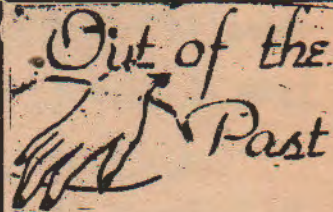 Out of the
Past